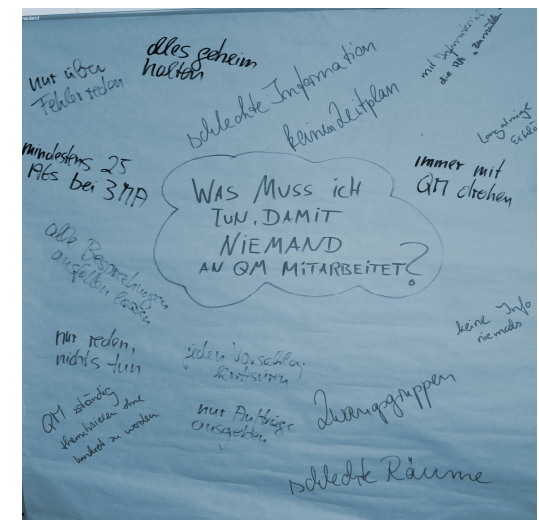 nur über
Fehler reden
alles geheim
halten
schlechte Information
keinen Zeitplan
mit Informationen
die MA
mindestens 25
AGs bei 3 MA
immer mit
QM drohen
WAS MUSS ICH
TUN, DAMIT
NIEMAND
AN QM MITARBEITET?
alle Besprechungen
ausfallen lassen
keine Info
niemals
nur reden,
nichts tun
jeden Vorschlag
kritisieren
QM ständig
thematisieren ohne
konkret zu werden
nur Aufträge
ausgeben
Zwangsgruppen
schlechte Räume